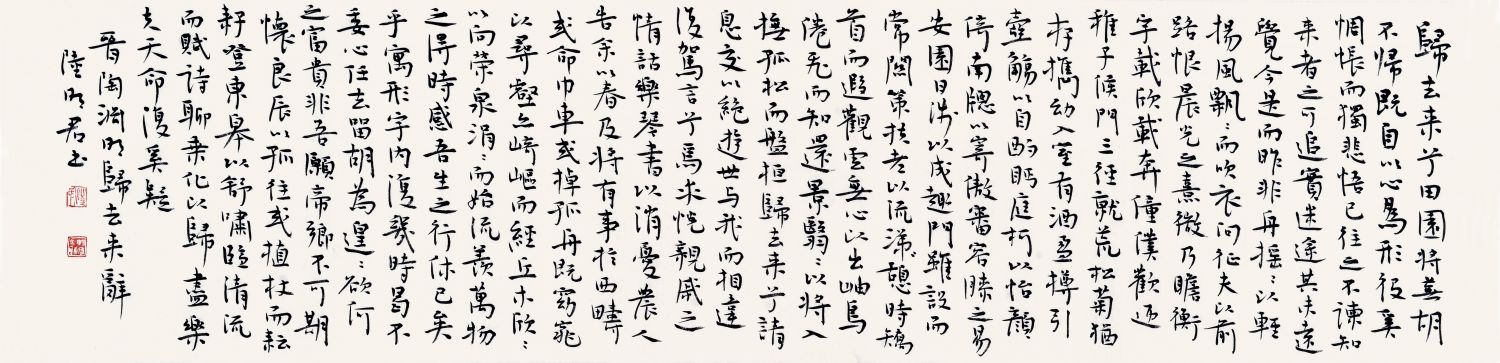 歸去来兮田園將蕪胡
不歸既自以心爲形役奚
惆悵而獨悲悟已往之不諫知
来者之可追實迷途其未遠
覺今是而昨非舟摇〻以輕
揚風飄〻而吹衣问征夫以前
路恨晨光之熹微乃瞻衡
宇載欣載奔僮僕歡迎
稚子候門三徑就荒松菊猶
存攜幼入室有酒盈樽引
壺觴以自酌眄庭柯以怡顔
倚南牕以寄傲審容膝之易
安園日涉以成趣門雖設而
常関策扶老以流涕憩時矯
首而遐觀雲無心以出岫鳥
倦飛而知還景翳〻以將入
撫孤松而盤桓歸去来兮請
息交以絶遊世与我而相違
復駕言兮焉求悦親戚之
情話樂琴書以消憂農人
告余以春及將有事於西疇
或命巾車或棹孤舟既窈窕
以尋壑亦崎嶇而經丘木欣〻
以向荣泉涓〻而始流羨萬物
之得時感吾生之行休已矣
乎寓形宇内復幾時曷不
委心任去留胡為遑〻欲何
之富貴非吾願帝鄉不可期
懷良辰以孤往或植杖而耘
耔登東皋以舒嘯臨清流
而賦詩聊乘化以歸盡樂
夫天命復奚疑
晉陶淵明歸去来辭
陸明君书